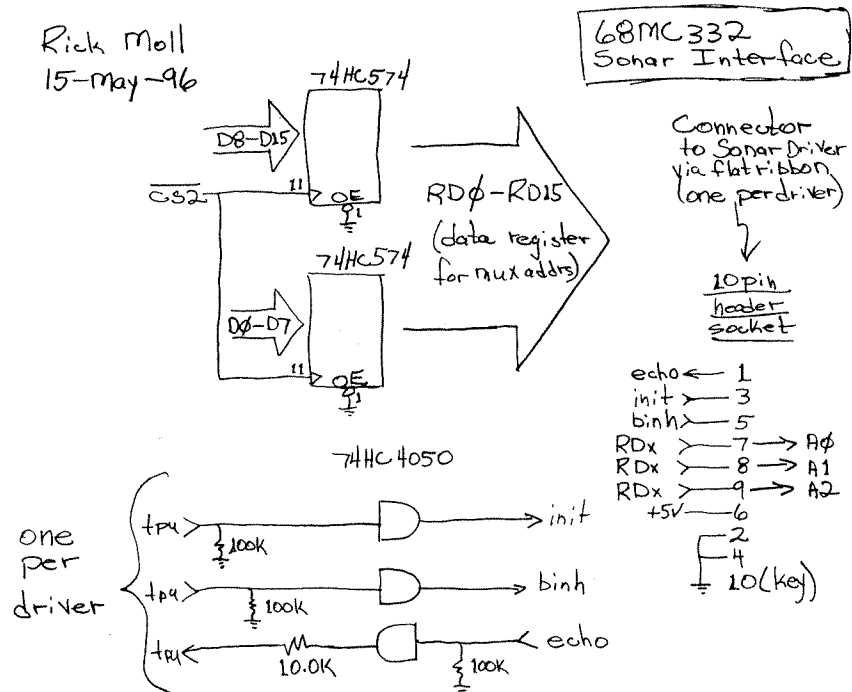 Rick Moll
15-May-96
68MC332
Sonar Interface
74HC574
D8-D15
CS2
11
OE
1
74HC574
D0-D7
11
OE
1
RD0-RD15
(data register
for mux addrs)
Connector
to Sonar Driver
via flat ribbon
(one per driver)
10pin
header
socket
echo 1
init 3
binh 5
RDx 7 A0
RDx 8 A1
RDx 9 A2
+5V 6
2
4
10(key)
74HC4050
one
per
driver
tpu 100K init
tpu 100K binh
tpu 10.0K 100K echo